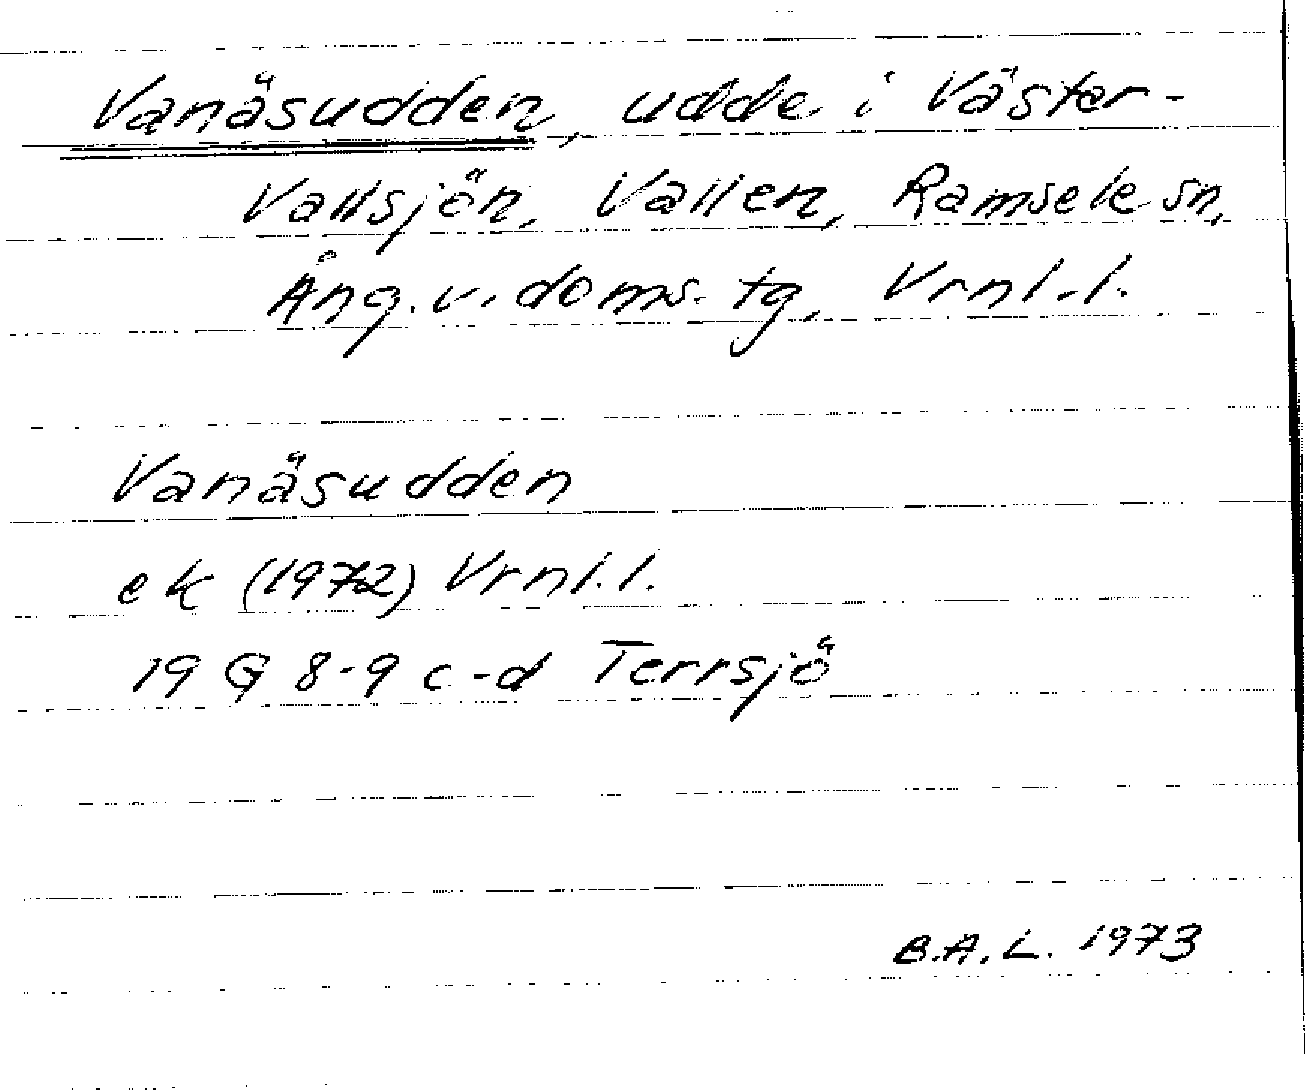 Vanäsudden, udde i Väster-
Vallsjön, Vallen, Ramsele sn,
Ång. v. doms. tg, Vrnl. l.
Vanäsudden
ek (1972) Vrnl. l.
19 G 8-9 c-d Terrsjö
B.A.L. 1973